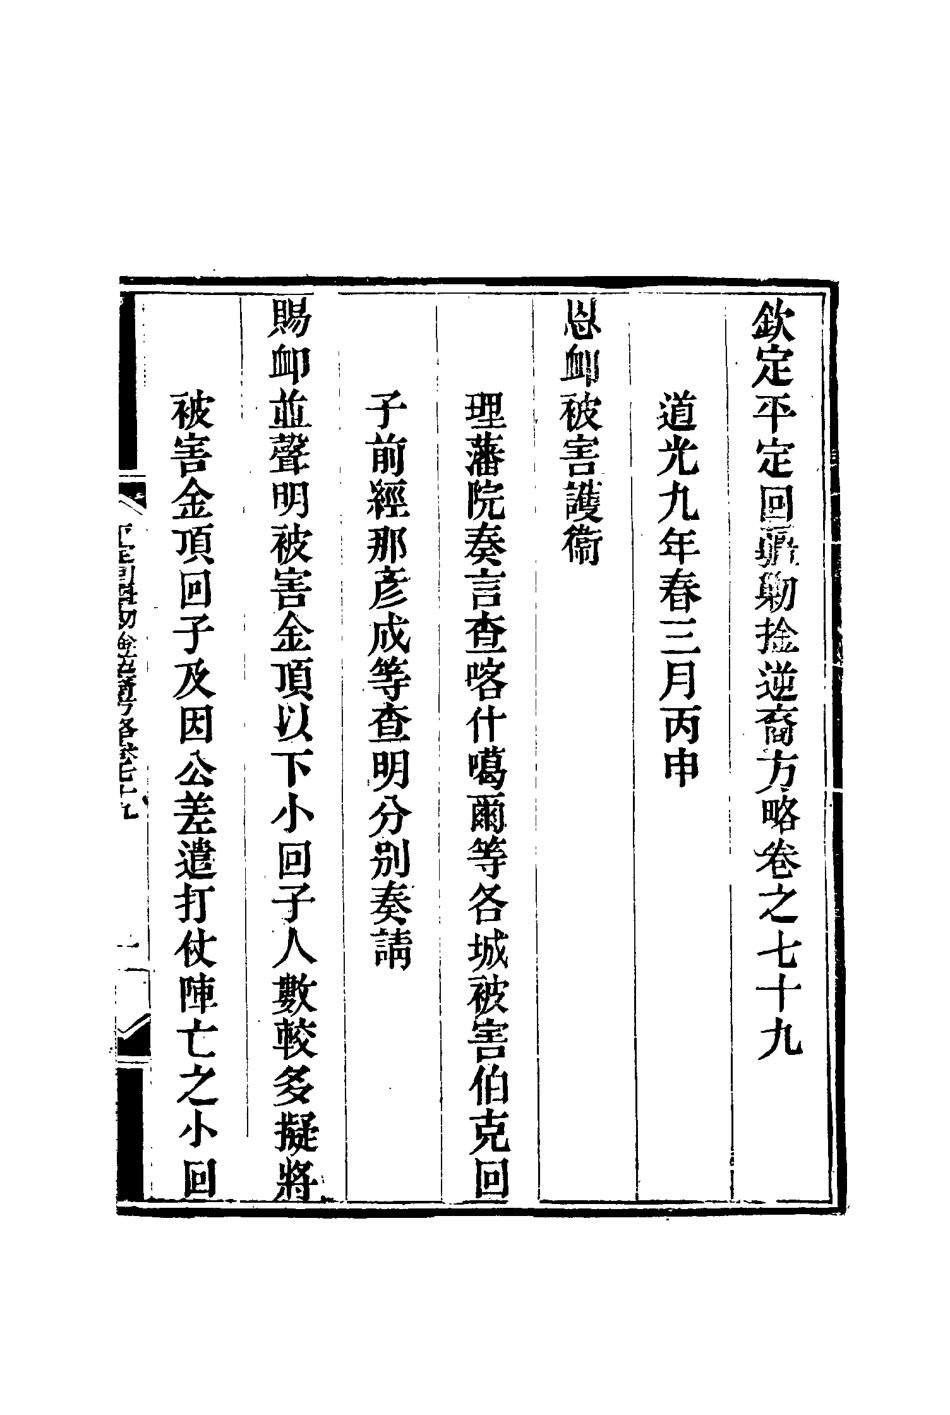 欽定平定回疆剿捦逆裔方略卷之七十九
道光九年春三月丙申
恩卹被害護衞
理藩院奏言查喀什噶爾等各城被害伯克回
子前經那彥成等查明分別奏請
賜卹並聲明被害金頂以下小回子人數較多擬將
被害金頂回子及因公差遣打仗陣亡之小回
平定回疆剿捦逆裔方略卷七十九
一